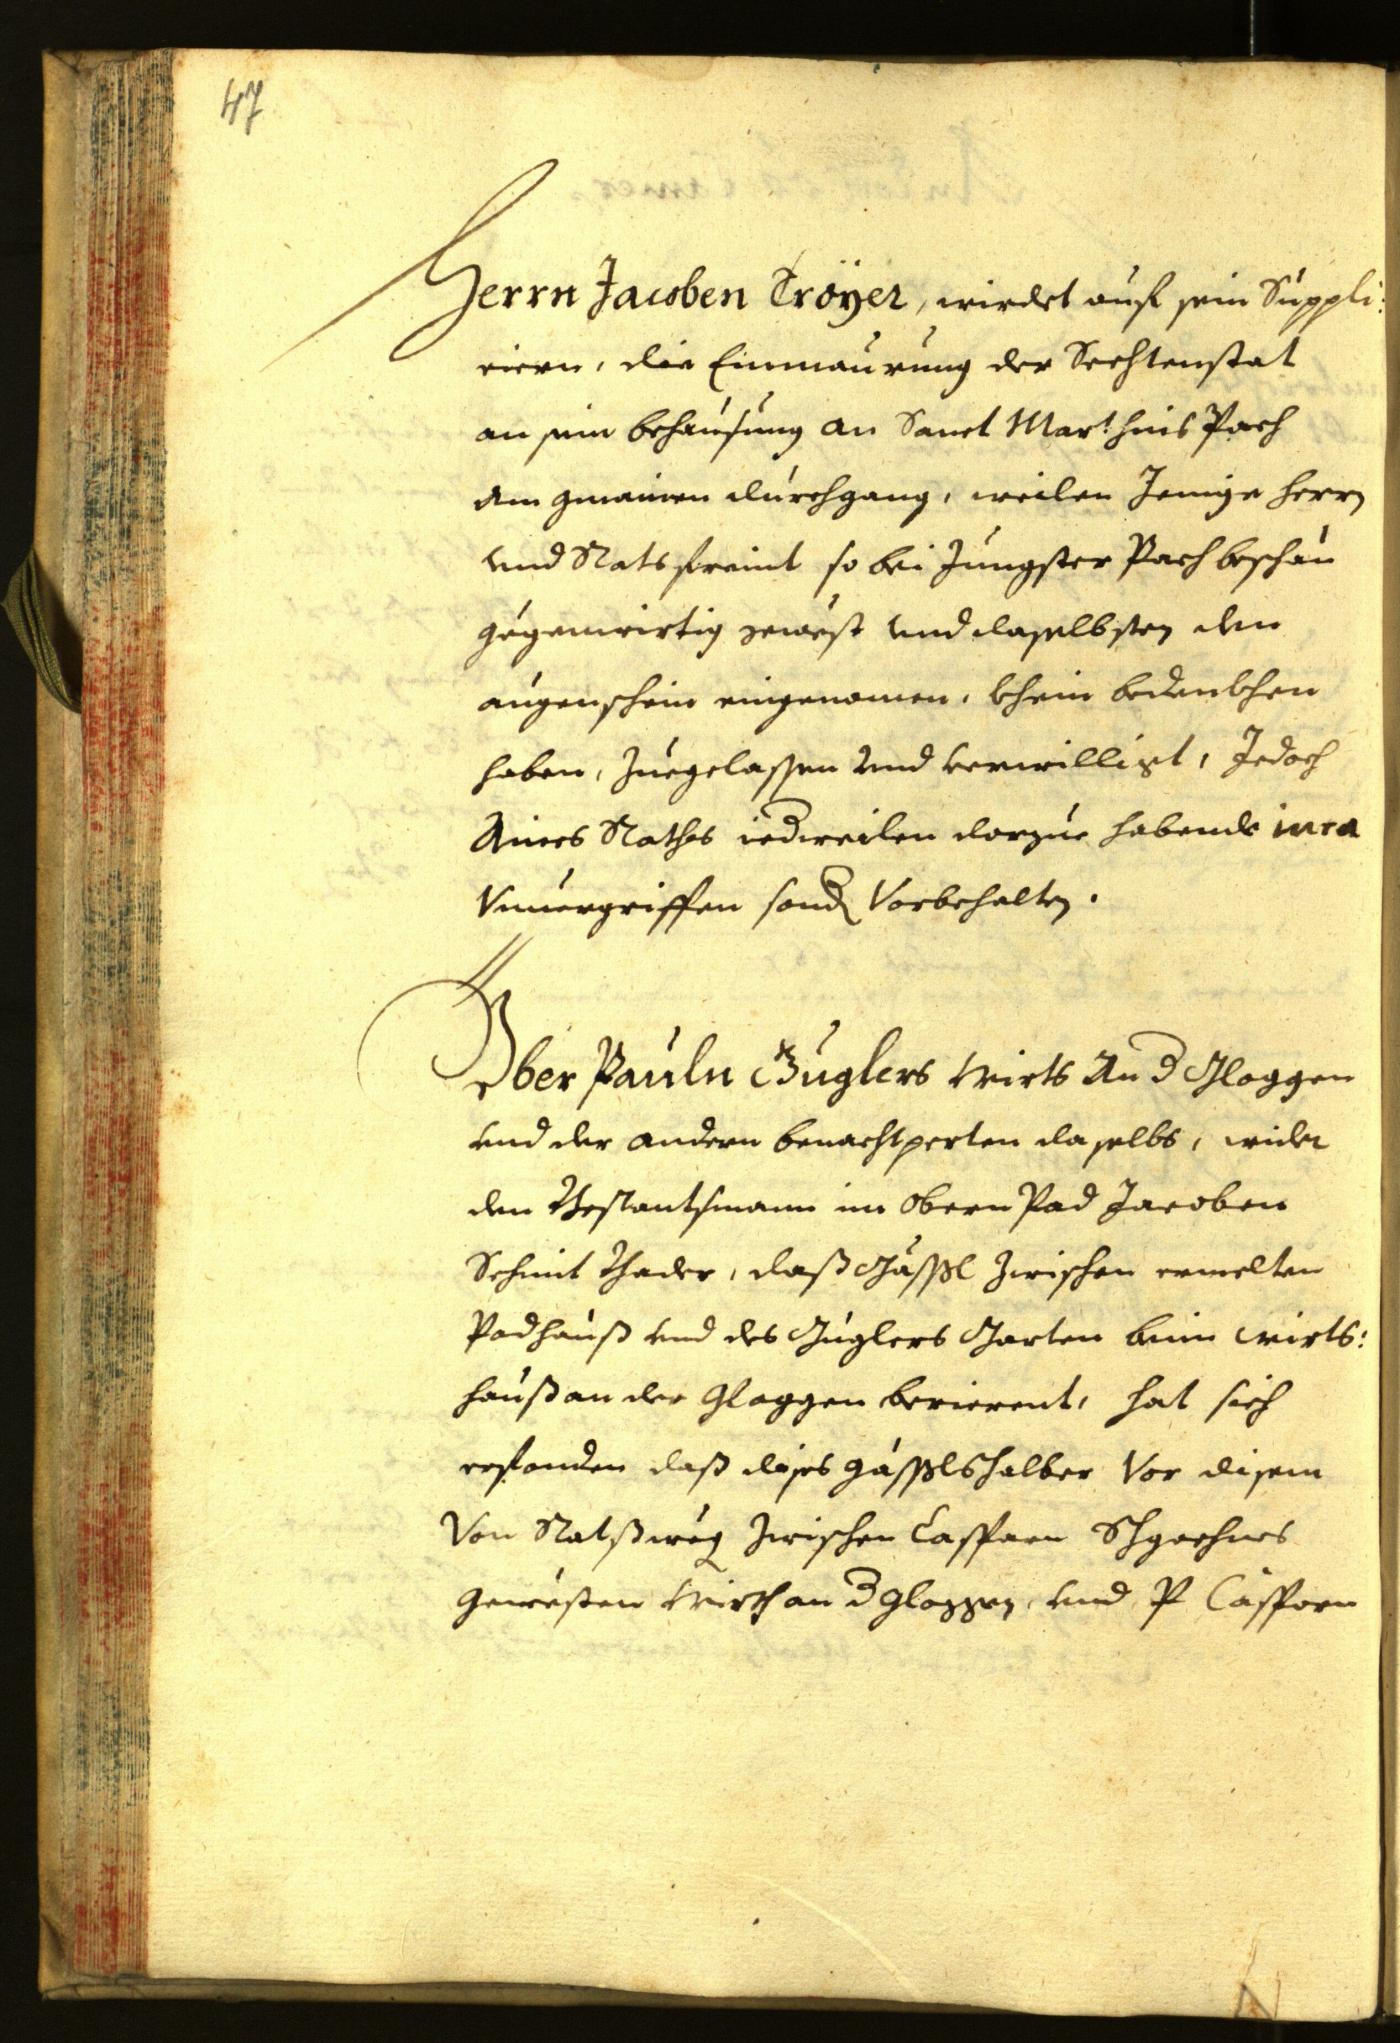 47
Herrn Jacoben Troÿer, wirdet auf sein Suppli:
ciern, die Einmaurung der Sechtenstat
an sein behausung an Sanct Marthins Pach
dem gmainen durchgang, weilen Jenige herrn
vnd Rats freint so bei Jungster Pach beschau
gegenwirtig gewest vnd daselbsten den
augenschein eingenomen, khein bedenkhen
haben, zuegelassen vnd verwilligt, Jedoch
Aines Rathes iedweilen darzue habende iura
Vnuergriffen sond Vorbehalten.
Vber Pauln Guglers Wirts An d Gloggen
vnd der andern benachtperten daselbs, wider
den Bestantsman im Obern Pad Jacoben
Schmit Pader, daß Gässl zwischen ermelten
Padhauß vnd des Guglers Garten beim wirts:
hauß an der Gloggen berierent, hat sich
erfonden daß dises gässls halber Vor disem
Von Ratß weg zwischen Casparn
gewesten Wirth an d gloggen, vnd Casparn